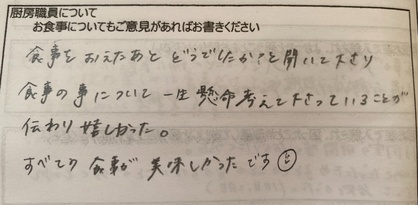 厨房職員について
お食事についてもご意見があればお書きください
食事をおえたあと どうでしたか?と聞いて下さり
食事の事について一生懸命考えて下さっていることが
伝わり嬉しかった。
すべての食事が美味しかったです